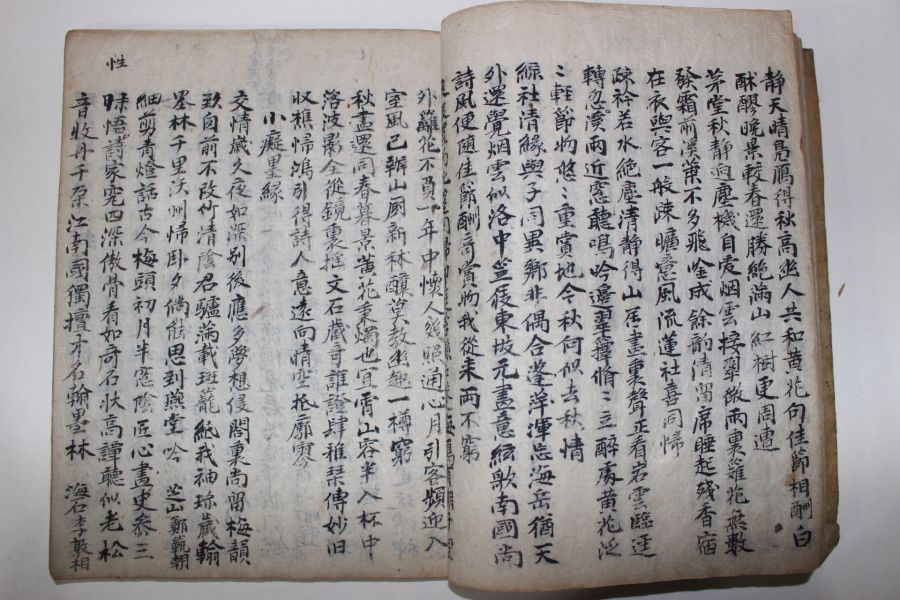 靜天晴鳧鵬得秋高幽人共和黃花句佳節相酬白
醪晚景較春還勝絶滿山紅樹更周遭
茅堂秋靜迥塵機自愛烟雲接翠微雨裏籬花無數
發霜前澤葉不多飛唫成餘韵清留席睡起殘香宿
在衣與客一般疎曠意風流蓮社喜同歸
疎衿若水絶塵清靜得山居畫裏聲正看岩雲臨逕
轉忽漢雨近窓聽鳴吟邊翠篁脩脩立醉處黃花泛
泛輕節物悠悠重賞地今秋何似去秋情
綜社清緣與子同異鄕非偶合蓬萍渾忘海岳猶天
外還覺烟雲似洛中竺屐東坡元畫意絃歌南國尚
詩風便隨佳節酬奇賞物我從來兩不窮
外籬花不負一年中懷人發照通心月引客頻迎入
室風已辦山厨新秫釀莫敎幽趣一樽窮
秋盡還同春暮景黃花秉燭也宜宵山容半入杯中
落波影全從鏡裏搖文石藏奇誰證肆雅琴傳妙旧
収樵歸鴻引得詩人意遠向情空抵廓寥
小癡墨緣
交情歲久夜如深別後應多夢想侵閣裏尚留梅韻
致自前不改竹情陰君驢滿載斑籠紙我袖珍藏翰
墨林千里沃州歸卧夕倘能思到燕堂吟 芝山鄭範朝
細剪靑燈話古今梅頭初月半窓陰匠心畫史參三
昧悟詩家究四深傲骨看如奇石狀高譚聽似老松
音收丹千厺江南國獨擅才名翰墨林 海石李敦相
性